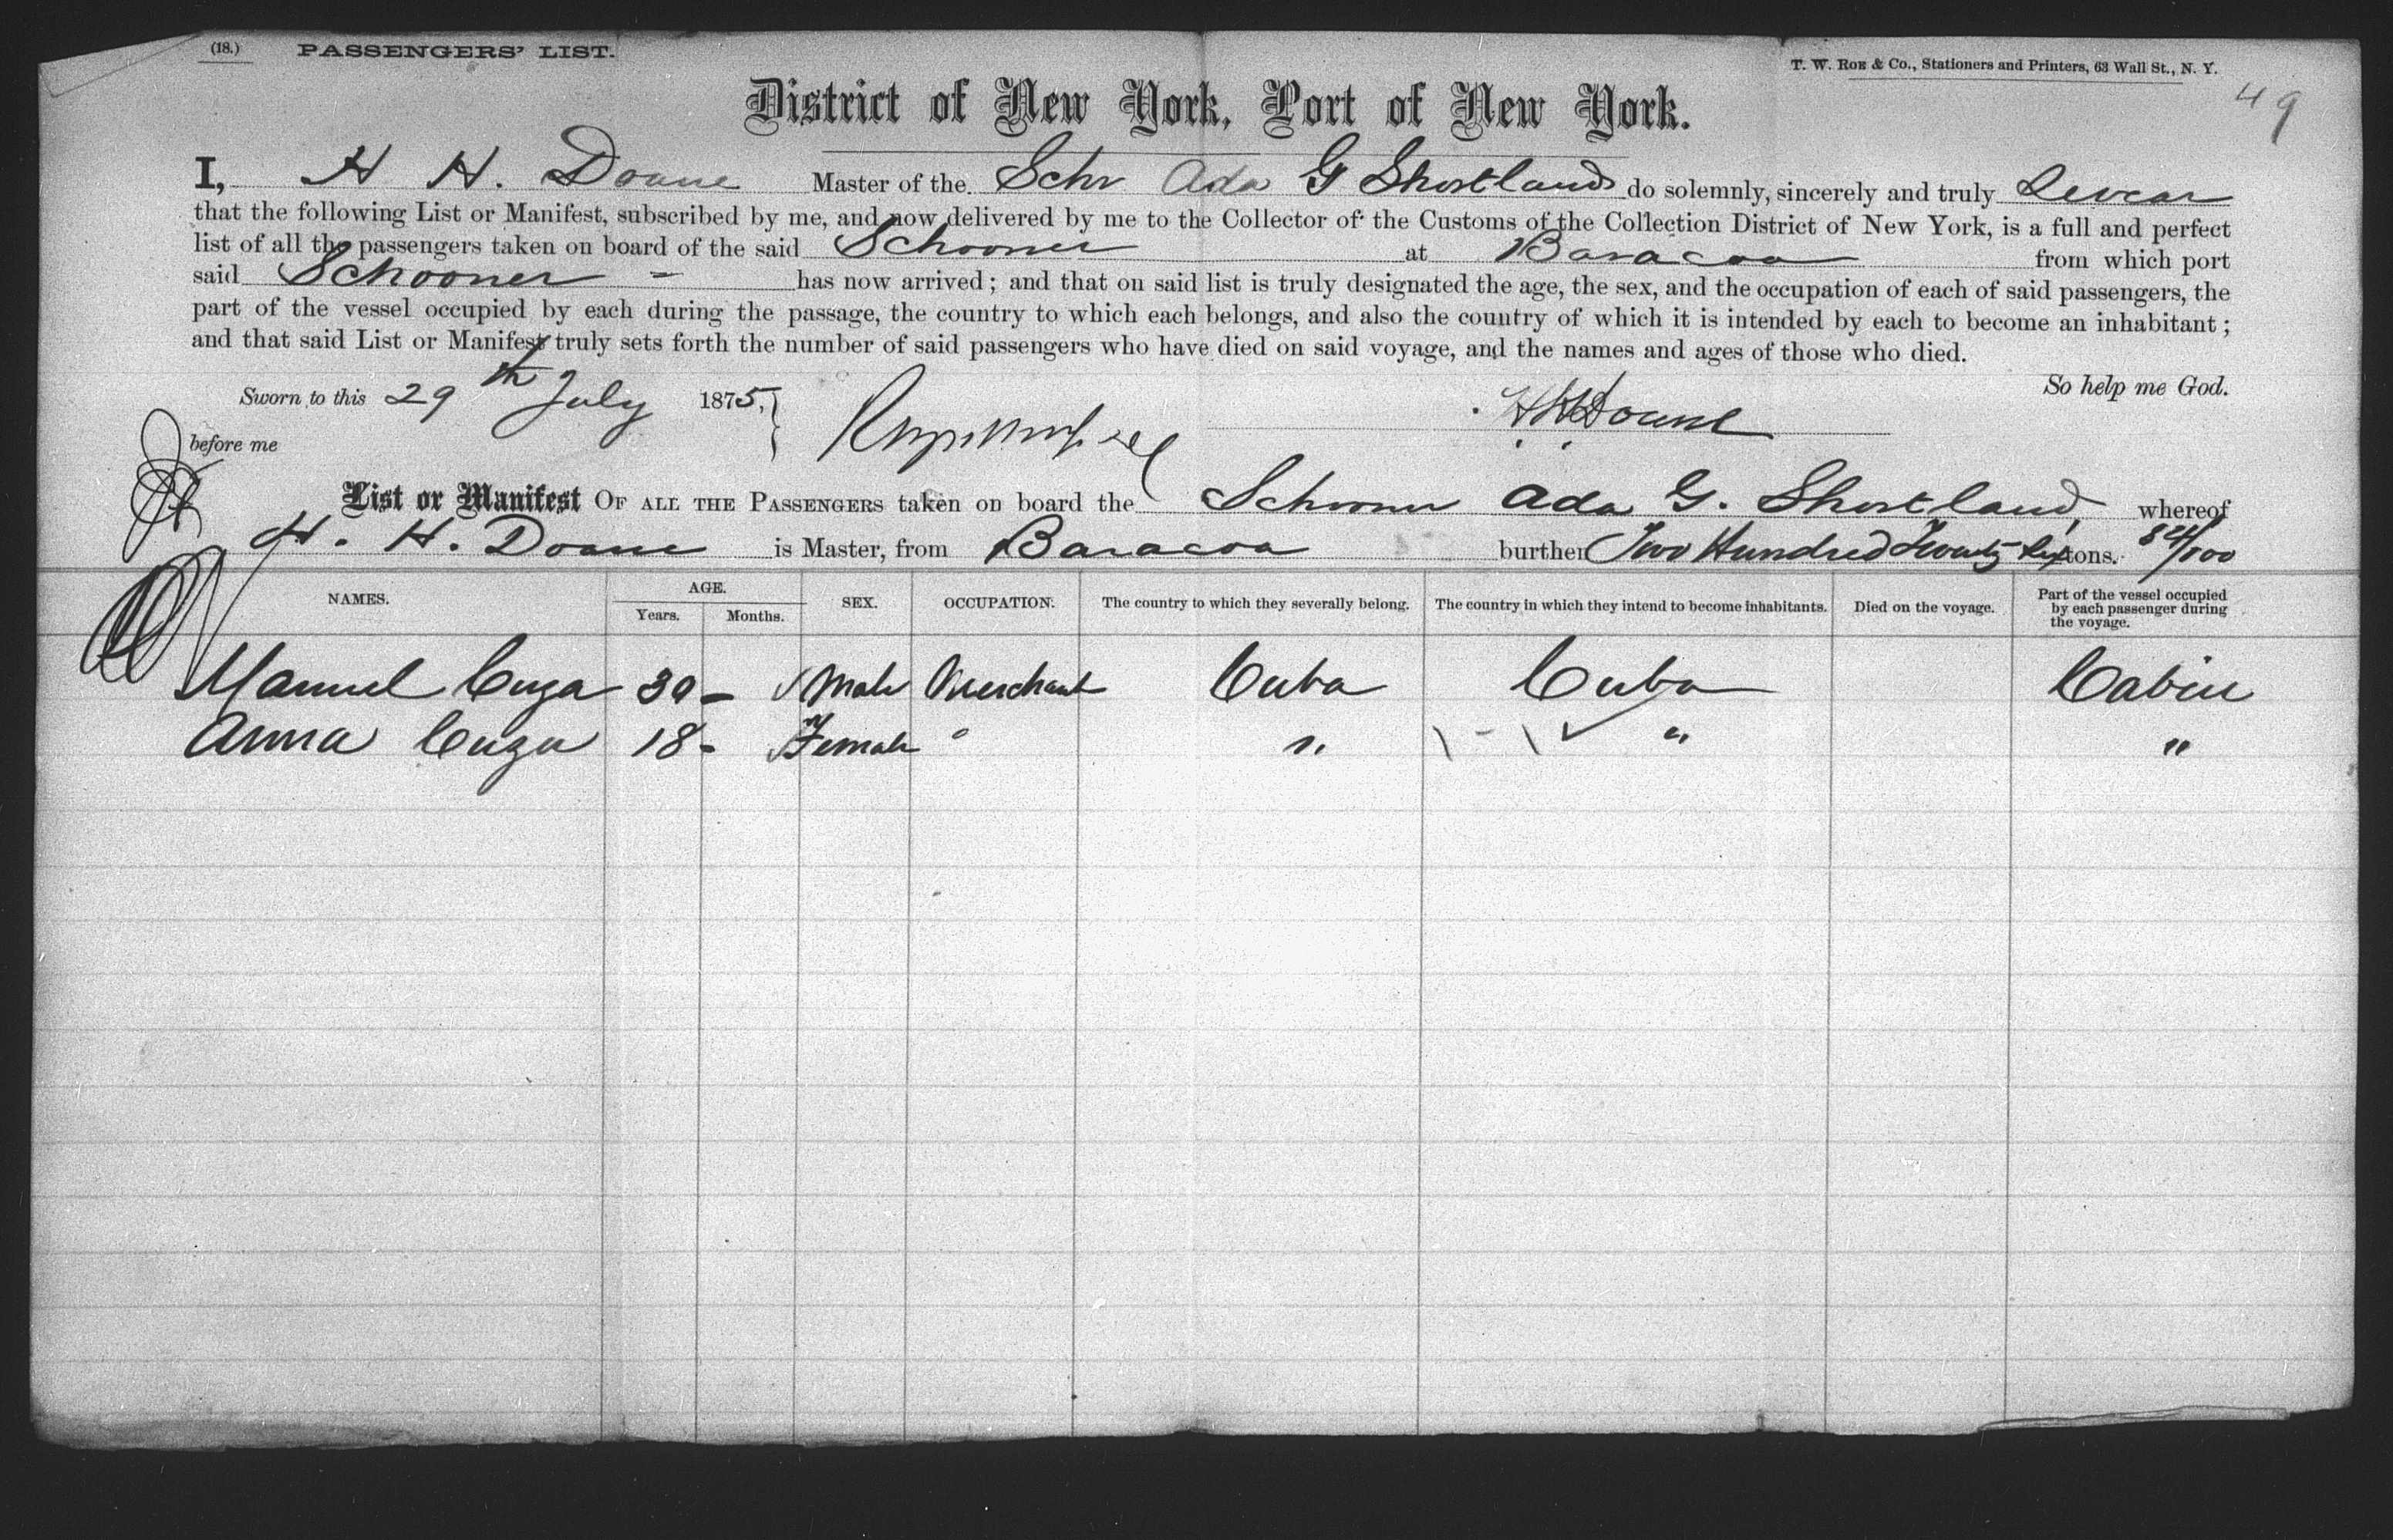 (18.) PASSENGERS' LIST.
T. W. ROE & Co., Stationers and Printers, 63 Wall St., N. Y.
49
District of New York, Port of New York.
I, H H. Doane Master of the Schr Ada G Shortland do solemnly, sincerely and truly Swear
that the following List or Manifest, subscribed by me, and now delivered by me to the Collector of the Customs of the Collection District of New York, is a full and perfect
list of all the passengers taken on board of the said Schooner at Baracoa from which port
said Schooner - has now arrived; and that on said list is truly designated the age, the sex, and the occupation of each of said passengers, the
part of the vessel occupied by each during the passage, the country to which each belongs, and also the country of which it is intended by each to become an inhabitant;
and that said List or Manifest truly sets forth the number of said passengers who have died on said voyage, and the names and ages of those who died.
So help me God.
Sworn to this 29th July 1875, HHDoane
before me
List or Manifest OF ALL THE PASSENGERS taken on board the Schooner Ada G. Shortland, whereof
H. H. Doane is Master, from Baracoa burthen Two Hundred Twenty Six tons. 84/100
NAMES. AGE. Years. Months. SEX. OCCUPATION. The country to which they severally belong. The country in which they intend to become inhabitants. Died on the voyage. Part of the vessel occupied by each passenger during the voyage.
Manuel Cuza 30 - Male Merchant Cuba Cuba Cabin
Anna Cuza 18 - Female " " " "